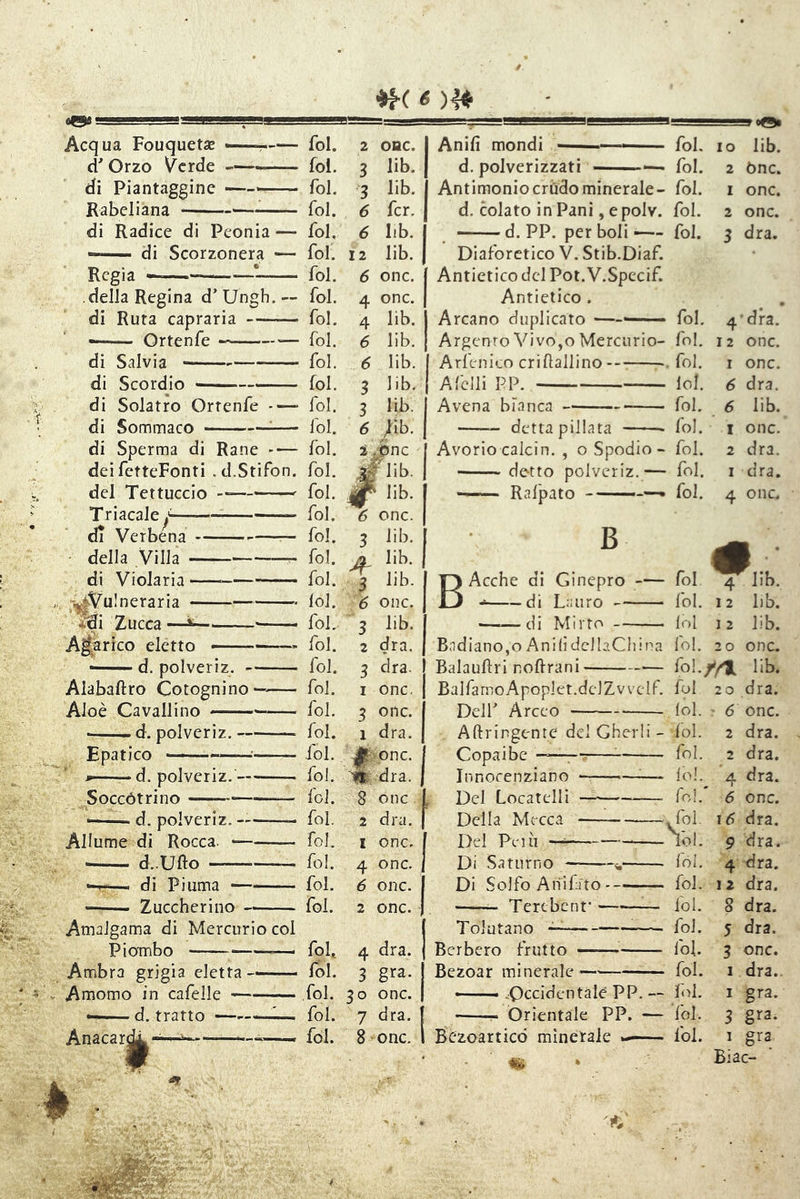 ( 6 )
Acqua Fouquetæ —— fol. 2 onc.
d'Orzo Verde —— fol. 3 lib.
di Piantaggine —— fol. 3 lib.
Rabeliana —— fol. 6 ſcr.
di Radice di Peonia — fol. 6 lib.
—— di Scorzonera — fol. 12 lib.
Regia —— fol. 6 onc.
della Regina d'Ungh. — fol. 4 onc.
di Ruta capraria —— fol. 4 lib.
—— Ortenſe —— fol. 6 lib.
di Salvia —— fol. 6 lib.
di Scordio —— fol. 3 lib.
di Solatro Ortenſe — fol. 3 lib.
di Sommaco —— fol. 6 lib.
di Sperma di Rane — fol. 2 onc
dei ſetteFonti . d.Stifon. fol. lib.
del Tettuccio —— fol. lib.
Triacale —— fol. 6 onc.
di Verbena —— fol. 3 lib.
della Villa —— fol. 4 lib.
di Violaria —— fol. 3 lib.
Vulneraria —— fol. 6 onc.
di Zucca —— fol. 3 lib.
Agarico eletto —— fol. 2 dra.
—— d. polveriz. —— fol. 3 dra.
Alabaſtro Cotognino —— fol. 1 onc.
Aloè Cavallino —— fol. 3 onc.
—— d. polveriz. —— fol. 1 dra.
Epatico —— fol. onc.
—— d. polveriz. —— fol. dra.
Soccòtrino —— fol. 8 onc
—— d. polveriz. —— fol. 2 dra.
Allume di Rocca. —— fol. 1 onc.
—— d. Uſto —— fol. 4 onc.
—— di Piuma —— fol. 6 onc.
—— Zuccherino —— fol. 2 onc.
Amalgama di Mercurio col
Piombo —— fol. 4 dra.
Ambra grigia eletta —— fol. 3 gra.
Amomo in caſelle —— fol. 30 onc.
—— d. tratto —— fol. 7 dra.
Anacardi —— fol. 8 onc.
Aniſi mondi —— fol. 10 lib.
d. polverizzati —— fol. 2 onc.
Antimonio crudo minerale - fol. 1 onc.
d. colato in Pani , e polv. fol. 2 onc.
—— d. PP. per boli —— fol. 3 dra.
Diaforetico V. Stib.Diaf.
Antietico del Pot.V.Specif.
Antietico .
Arcano duplicato —— fol. 4 dra.
Argento Vivo,o Mercurio - fol. 12 onc.
Arſenico criſtallino —— fol. 1 onc.
Aſelli PP. —— fol. 6 dra.
Avena bianca —— fol. 6 lib.
—— detta pillata —— fol. 1 onc.
Avorio calcin. , o Spodio - fol. 2 dra.
—— detto polveriz. — fol. 1 dra.
—— Raſpato —— fol. 4 onc.
B
BAcche di Ginepro — fol 4 lib.
—— di Lauro —— fol. 12 lib.
—— di Mirto —— fol 12 lib.
Badiano,o Aniſi dellaChina fol. 20 onc.
Balauſtri noſtrani —— fol. lib.
BalſamoApoplet.delZvvelf. fol 20 dra.
Dell' Arceo —— fol. 6 onc.
Aſtringente del Gherli - fol. 2 dra.
Copaibe —— fol. 2 dra.
Innocenziano —— fol. 4 dra.
Del Locatelli —— fol. 6 onc.
Della Mecca —— fol 16 dra.
Del Perù —— fol. 9 dra.
Di Saturno —— fol. 4 dra.
Di Solfo Aniſato —— fol. 12 dra.
—— Terebent —— fol. 8 dra.
Tolutano —— fol. 5 dra.
Berbero frutto —— fol. 3 onc.
Bezoar minerale —— fol. 1 dra.
—— Occidentale PP. — fol. 1 gra.
—— Orientale PP. — fol. 3 gra.
Bezoartico minerale —— fol. 1 gra
Biac-